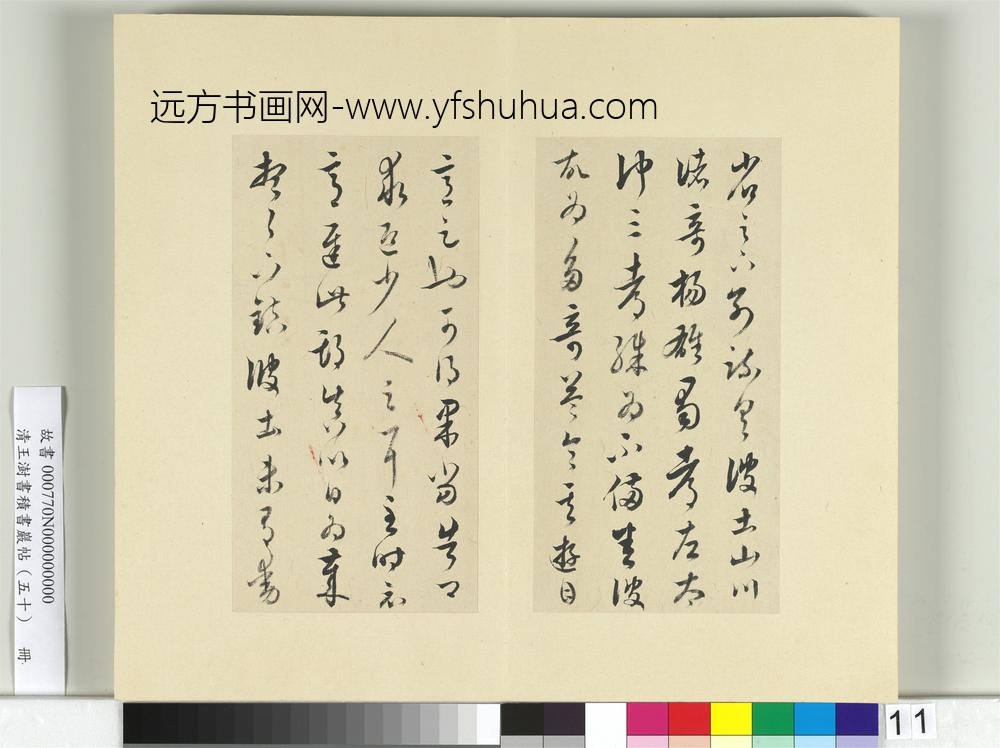 远方书画网-www.yfshuhua.com
省足下別疏具彼土山川
諸奇楊雄蜀都左太
沖三都殊為不備悉彼
故為多奇益令其遊目
意足也可得果當告卿
求迎少人足耳至時示
意遲此期真以日為歲
想足下鎮彼土未有動
故書 000770N000000000
清王澍書積書巖帖(五十) 冊
11